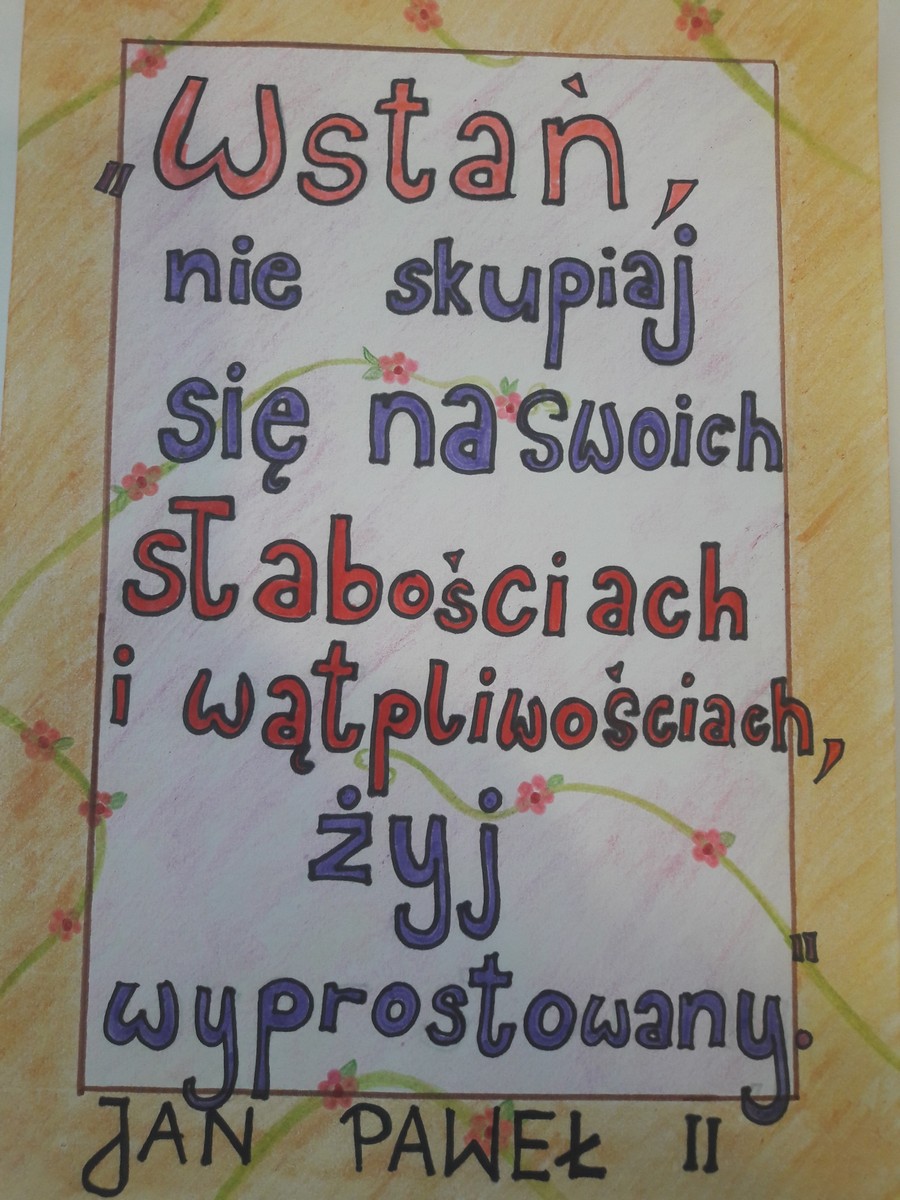 „Wstań,
nie skupiaj
się na swoich
słabościach
i wątpliwościach,
żyj
wyprostowany."
JAN PAWEŁ II